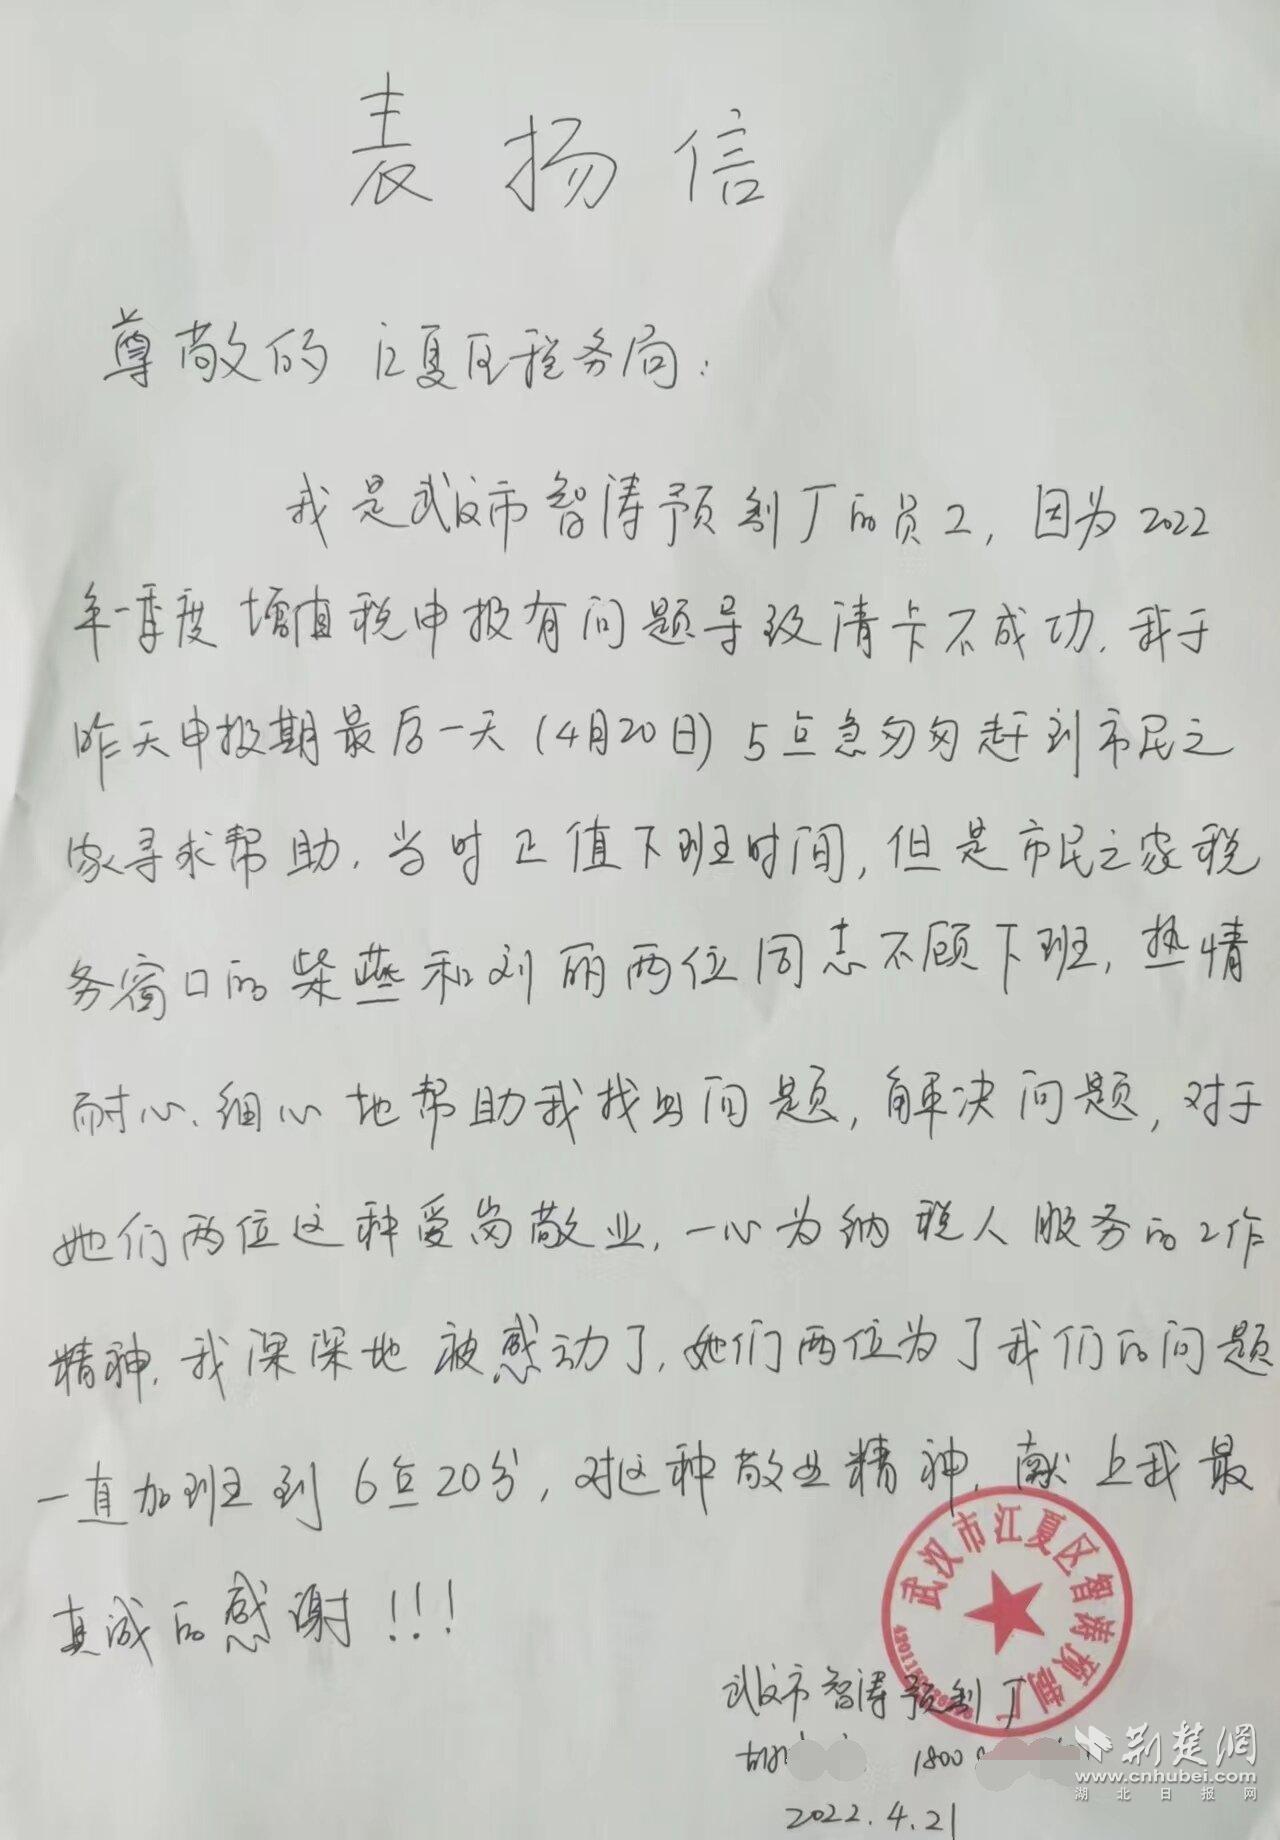 表扬信
尊敬的江夏区税务局：
我是武汉市智涛预制厂的员工，因为2022
年一季度增值税申报有问题导致清卡不成功.我于
昨天申报期最后一天(4月20日)5点急匆匆赶到市民之
家寻求帮助.当时正值下班时间,但是市民之家税
务窗口的柴燕和刘丽两位同志不顾下班,热情
耐心、细心地帮助我找出问题,解决问题,对于
她们两位这种爱岗敬业,一心为纳税人服务的工作
精神,我深深地被感动了,她们两位为了我们的问题
一直加班到6点20分,对这种敬业精神,献上我最
真诚的感谢!!!
武汉市江夏区智涛预制厂
武汉市智涛预制厂
胡
1800
2022.4.21
荆楚網
www.cnhubei.com
湖北日报网